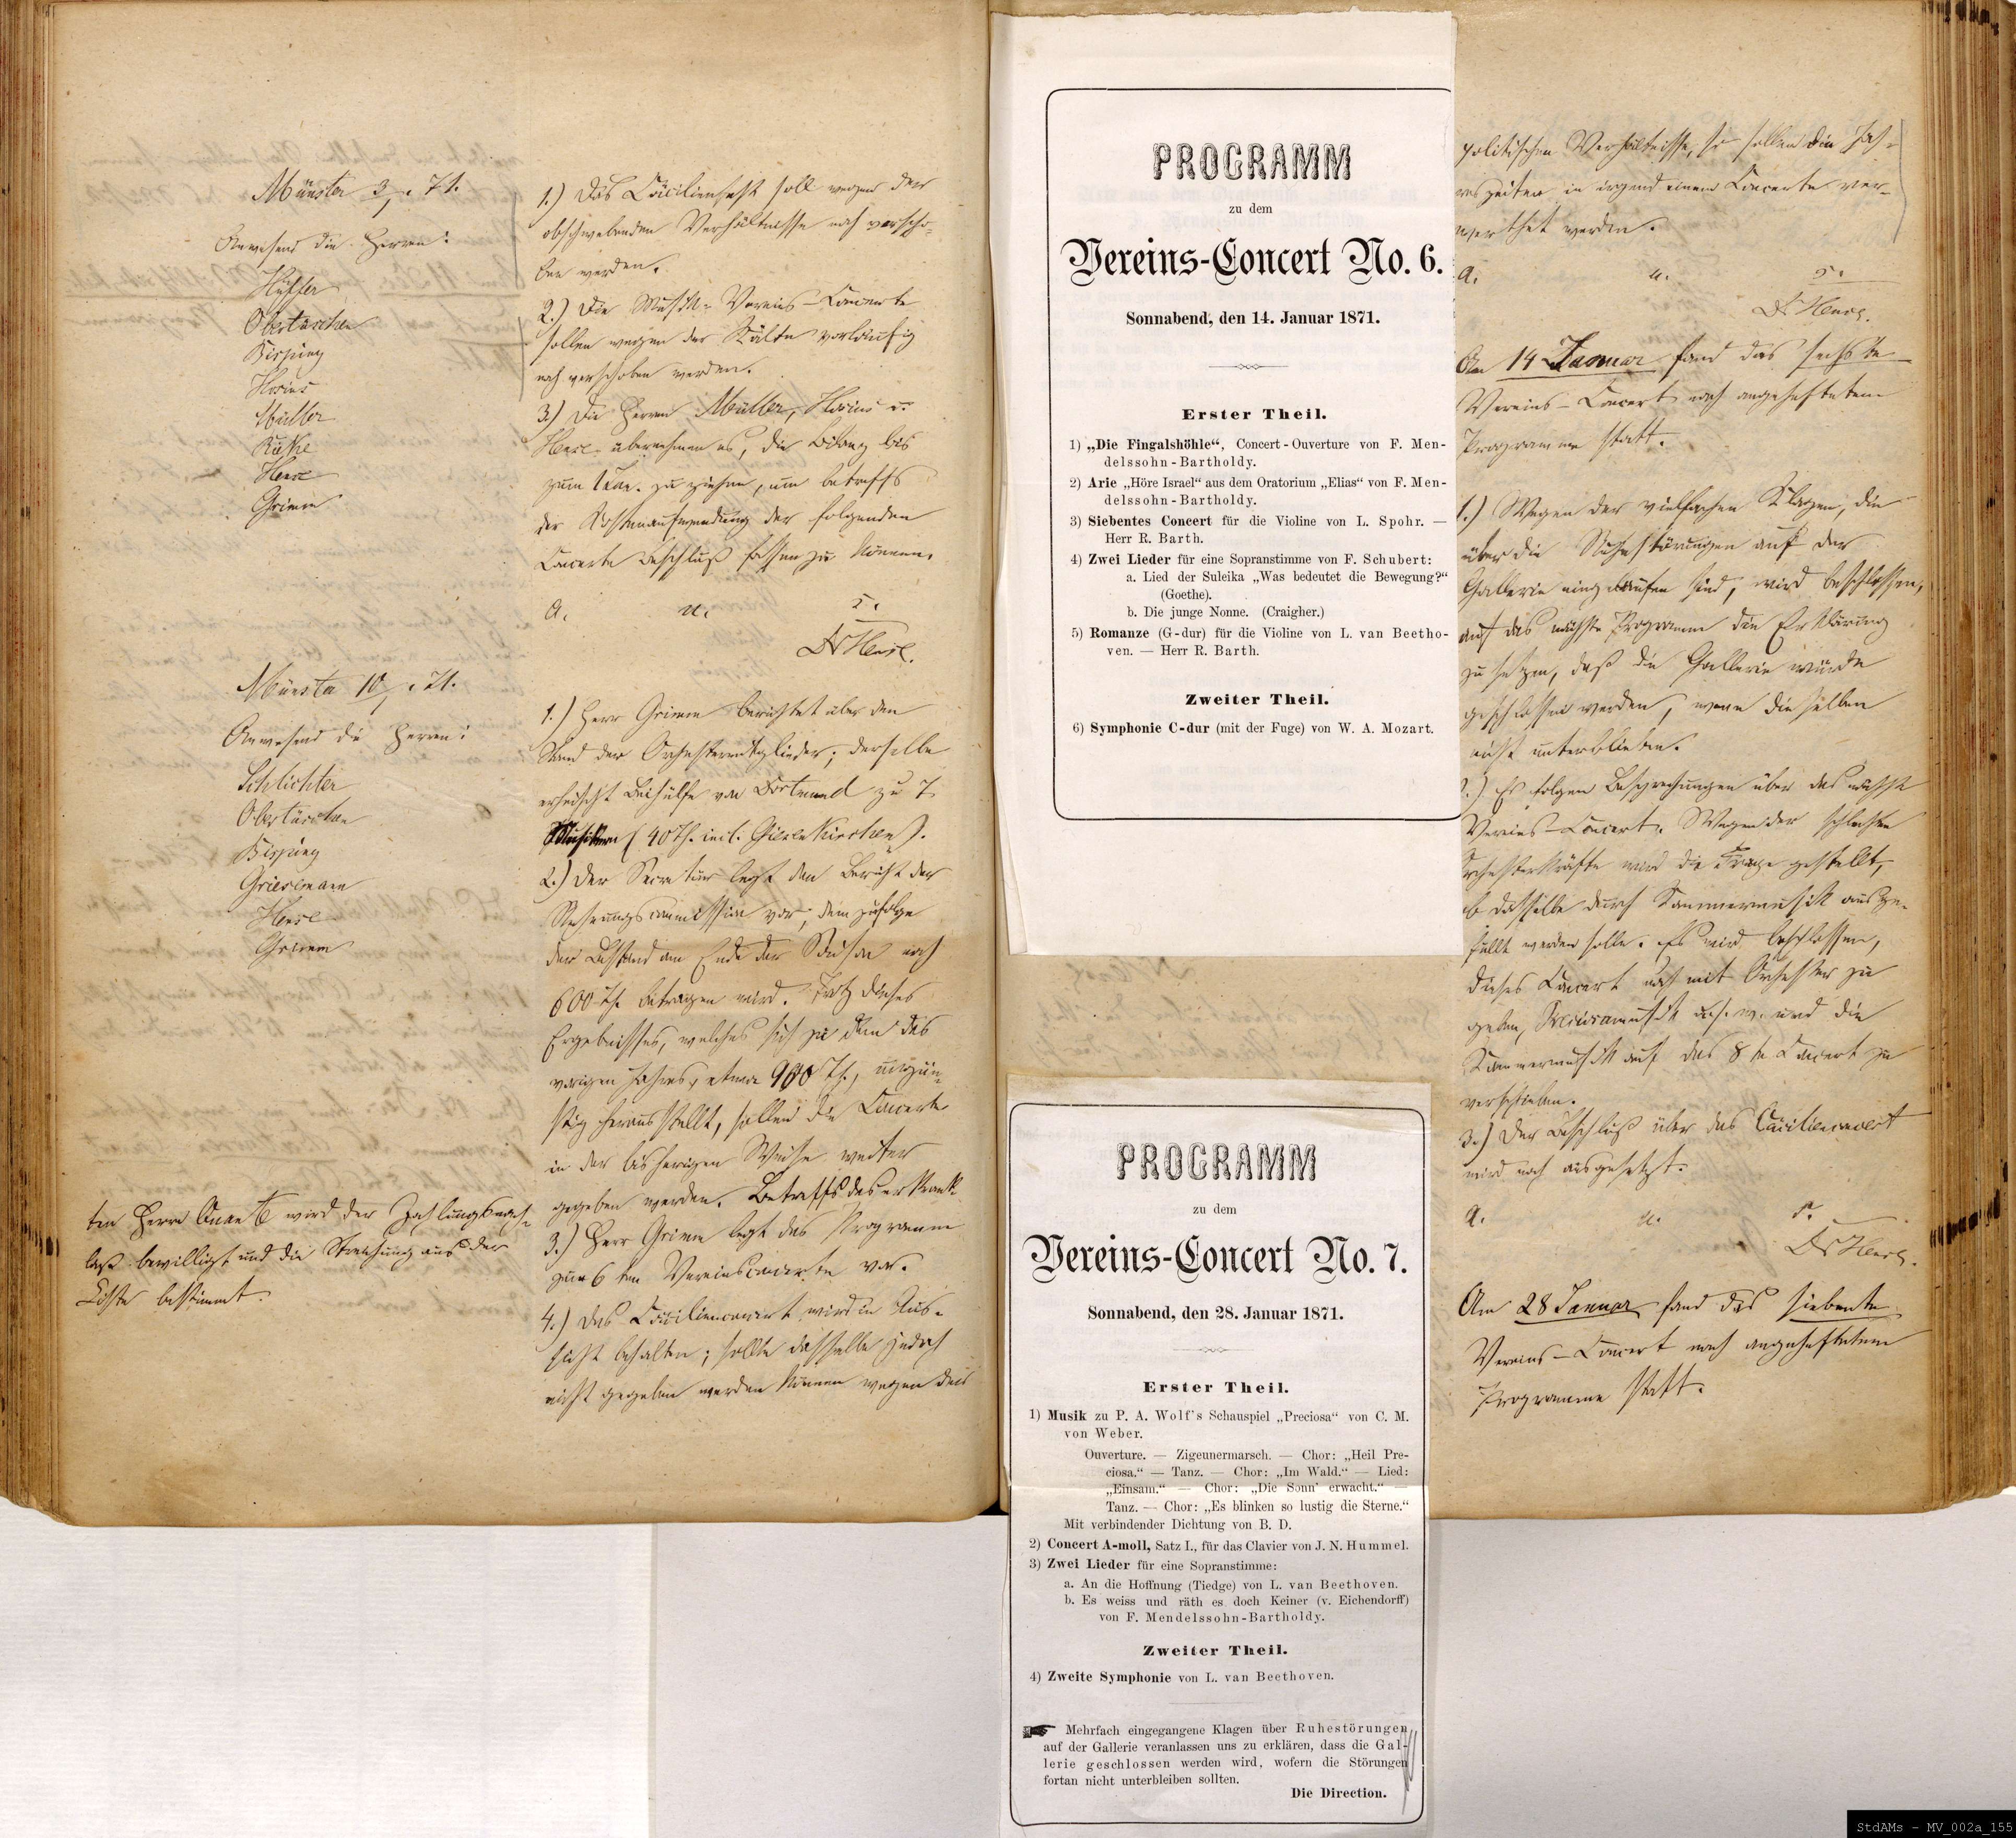 Münster 3/1. 71.
Anwesend die Herren:
Hüffer
Obertüschen
Bisping
Hosius
Müller
Rüke
Hense
Grimm
1.) Das Cäcilienfest soll wegen der
obschwebenden Verhältnisse noch verscho-
ben werden.
2.) Die Musik-Vereins-Concerte
sollen wegen der Kälte vorläufig
noch verschoben werden.
3.) Die Herren Müller, Hosius u.
Hense übernehmen es, die Bilanz bis
zum 1 Jan. zu ziehen, um betreffs
der Kostenaufwendung der folgenden
Concerte Beschluß fassen zu können.
a. u. s.
Dr Hense.
Münster 10/1. 71.
Anwesend die Herren:
Schlichter
Obertüschen
Bisping
Griesemann
Hense
Grimm
1.) Herr Grimm berichtet über den
Stand der Orchestermitglieder; derselbe
erheischt Beihülfe von Dortmund zu 7
Musikern (40 Th. incl. Gielenkirchen).
2.) Der Secretär legt den Bericht der
Rechnungscommission vor, dem zufolge
der Bestand am Ende der Saison noch
600 Th. betragen wird. Trotz dieses
Ergebnisses, welches sich zu dem des
vorigen Jahres, etwa 900 Th., ungün-
stig herausstellt, sollen die Concerte
in der bisherigen Weise weiter
gegeben werden. Betreffs des erkrank-
ten Herrn wird der Zahlungsnach-
laß bewilligt und die Streichung aus der
Liste bestimmt.
3.) Herr Grimm legt das Programm
zum 6ten Vereinsconcerte vor.
4.) Das Cäcilienconcert wird in Aus-
sicht behalten; sollte dasselbe jedoch
nicht gegeben werden können wegen der
PROGRAMM
zu dem
Vereins-Concert No. 6.
Sonnabend, den 14. Januar 1871.
Erster Theil.
1) „Die Fingalshöhle“, Concert-Ouverture von F. Men-
delssohn-Bartholdy.
2) Arie „Höre Israel“ aus dem Oratorium „Elias“ von F. Men-
delssohn-Bartholdy.
3) Siebentes Concert für die Violine von L. Spohr. —
Herr R. Barth.
4) Zwei Lieder für eine Sopranstimme von F. Schubert:
a. Lied der Suleika „Was bedeutet die Bewegung?“
(Goethe).
b. Die junge Nonne. (Craigher.)
5) Romanze (G-dur) für die Violine von L. van Beetho-
ven. — Herr R. Barth.
Zweiter Theil.
6) Symphonie C-dur (mit der Fuge) von W. A. Mozart.
PROGRAMM
zu dem
Vereins-Concert No. 7.
Sonnabend, den 28. Januar 1871.
Erster Theil.
1) Musik zu P. A. Wolf's Schauspiel „Preciosa“ von C. M.
von Weber.
Ouverture. — Zigeunermarsch. — Chor: „Heil Pre-
ciosa.“ — Tanz. — Chor: „Im Wald.“ — Lied:
„Einsam.“ — Chor: „Die Sonn' erwacht.“ —
Tanz. — Chor: „Es blinken so lustig die Sterne.“
Mit verbindender Dichtung von B. D.
2) Concert A-moll, Satz I., für das Clavier von J. N. Hummel.
3) Zwei Lieder für eine Sopranstimme:
a. An die Hoffnung (Tiedge) von L. van Beethoven.
b. Es weiss und räth es doch Keiner (v. Eichendorff)
von F. Mendelssohn-Bartholdy.
Zweiter Theil.
4) Zweite Symphonie von L. van Beethoven.
Mehrfach eingegangene Klagen über Ruhestörungen
auf der Gallerie veranlassen uns zu erklären, dass die Gal-
lerie geschlossen werden wird, wofern die Störungen
fortan nicht unterbleiben sollten.
Die Direction.
politischen Verhältnisse, so sollen die Jah-
reszeiten in irgend einem Concerte ver-
werthet werden.
a. u. s.
Dr Hense.
Am 14 Januar fand das sechste
Vereins-Concert nach angeheftetem
Programme statt.
1.) Wegen der vielfachen Klagen, die
über die Ruhestörungen auf der
Gallerie eingelaufen sind, wird beschlossen,
auf das nächste Programm die Erklärung
zu setzen, daß die Gallerie würde
geschlossen werden, wenn dieselben
nicht unterblieben.
2.) Es folgen Besprechungen über das nächste
Vereins-Concert. Wegen der schlechten
Orchesterkräfte wird die Frage gestellt,
ob dasselbe durch Kammermusik ausge-
füllt werden solle. Es wird beschlossen,
dieses Concert noch mit Orchester zu
geben, Preciosamusik u.s.w. und die
Kammermusik auf das 8te Concert zu
verschieben.
3.) Der Beschluß über das Cäcilienconcert
wird noch ausgesetzt.
a. u. s.
Dr Hense.
Am 28 Januar fand das siebente
Vereins-Concert nach angeheftetem
Programme statt.
StdAMs - MV_002a_155